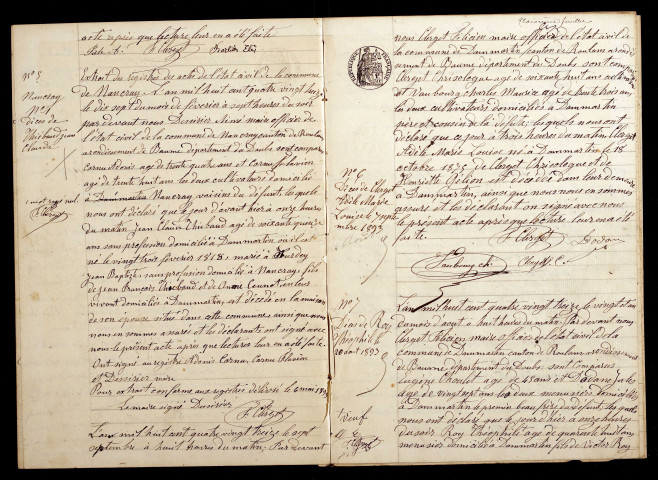 acte après que lecture leur en a été faite
F. Clerget
N° 5
Nancray
N° 1
Décès de
Thiebaud Jean
Claude
Extrait du registre des actes de l'état civil de la commune
de Nancray. L'an mil huit cent quatre vingt treize
le dix sept du mois de février à sept heures du soir
par devant nous Dessirier maire officier de
l'état civil de la commune de Nancray canton de Roulans
arrondissement de Baume département du Doubs sont comparus
Cornu Adonis age de trente quatre ans et Cornu Flavien
age de trente huit ans les deux cultivateurs domicilié
à Nancray voisins du défunt, lesquels
nous ont déclaré que le jour d'avant hier à onze heures
du matin Jean Claude Thiebaud age de soixante quinze
ans sans profession domicilié à Dammartin où il est
né le vingt trois février 1818, marié à
Jean Baptiste, sans profession domicilié à Nancray, fils
de Jean François Thiebaud et de Anne Cuenot, en leur
vivant domiciliés à Dammartin, est décédé en la maison
de son épouse situé dans cette commune ainsi que nous
nous en sommes assurés et les déclarants ont signé avec
nous le présent acte après que lecture leur en a été faite.
Ont signé au registre Adonis Cornu, Cornu Flavien
et Dessirier maire
Pour extrait conforme au registre délivré le 6 mai 1893
Le maire signé Dessirier
F. Clerget
L'an mil huit cent quatre vingt treize le sept
septembre à huit heures du matin. Par devant
un mot rayé nul
F. Clerget
nous Clerget Félicien maire officier de l'état civil de
la commune de Dammartin canton de Roulans arrondis
sement de Baume département du Doubs sont comparus
Clerget Chrisologue age de soixante huit ans cultivateur
et Vaubourg Charles Maurice age de trente trois ans
les deux cultivateurs domiciliés à Dammartin
père et cousin de la défunte, lesquels nous ont
déclaré que ce jour à trois heures du matin Clerget
Adèle Marie Louise né à Dammartin le 18
octobre 1872 de Clerget Chrisologue et de
Henriette est décédée dans leur demeure
à Dammartin, ainsi que nous nous en sommes
assurés et les déclarants ont signé avec nous
le présent acte après que lecture leur en a été
faite.
F. Clerget
Vaubourg ch. Clerget C.
N° 6
Décès de Clerget
Adèle Marie
Louise le 7 septem
bre 1893
N° 7
Décès de Roy
Théophile le
20 août 1893
Veuf
L'an mil huit cent quatre vingt treize le vingt et un
du mois d'août à huit heures du matin. Par devant nous
Clerget Félicien maire officier de l'état civil de la
commune de Dammartin canton de Roulans arrondissement
de Baume département du Doubs. sont comparus
Eugène age de 45 ans et Jules
age de vingt sept ans les deux menuisiers domiciliés
à Dammartin le premier beau frère du défunt, lesquels
nous ont déclaré que le jour d'hier à onze heures
du soir Roy Théophile age de quarante huit ans
menuisier domicilié à Dammartin fils de Victor Roy